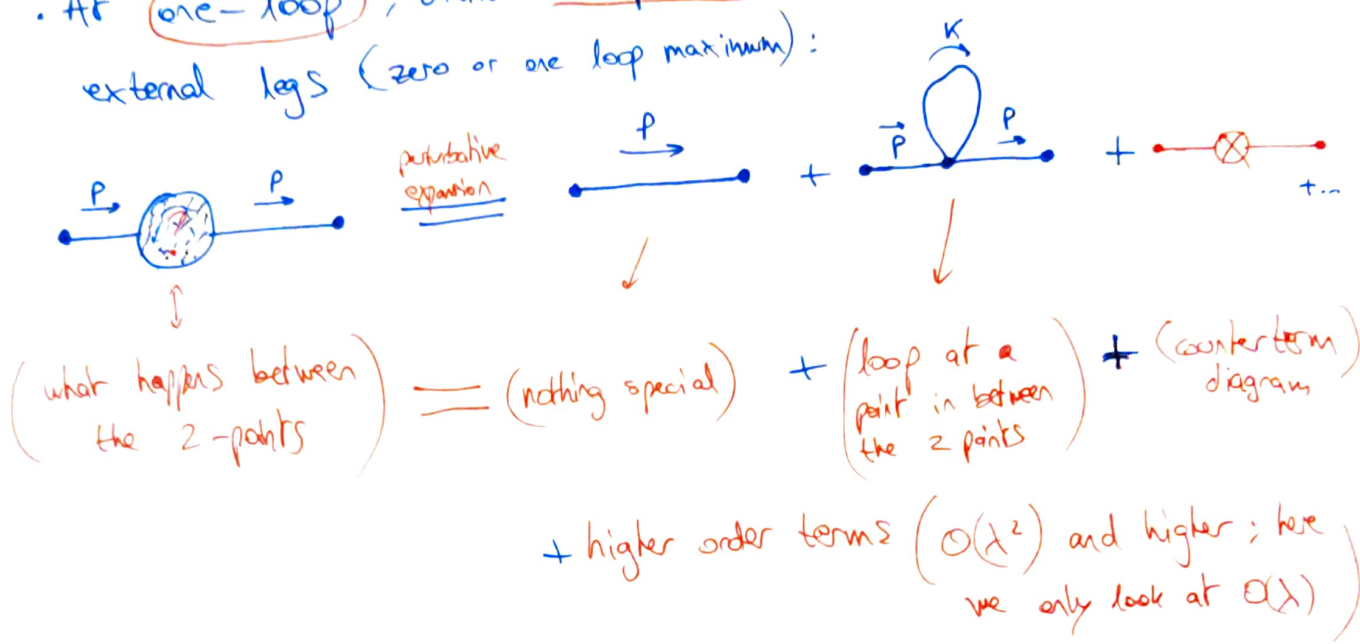 . At one-loop,
external legs (zero or one loop maximum):
K
P P perturbative expansion P + P P + +...
(what happens between the 2-points) = (nothing special) + (loop at a point in between the 2 points) + (counterterm diagram)
+ higher order terms (O(λ²) and higher; here
we only look at O(λ))